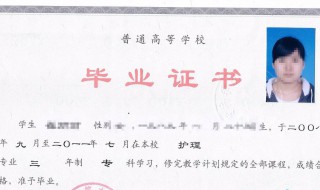 普通高等学校
毕业证书
学生 性别 一九八九年 月 生，于二〇〇
年 九 月至二〇一一年 七 月在本校 护理
专业 三 年制 专 科学习，修完教学计划规定的全部课程，成绩合
格，准予毕业。